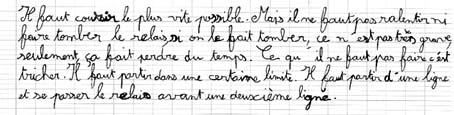 Il faut courir le plus vite possible. Mais il ne faut pas ralentir ni
faire tomber le relais si on le fait tomber, ce n'est pas très grave,
seulement, ça fait perdre du temps. Ce qu'il ne faut pas faire c'est
tricher. Il faut partir dans une certaine limite. Il faut partir d'une ligne
et se passer le relais avant une deuxième ligne.